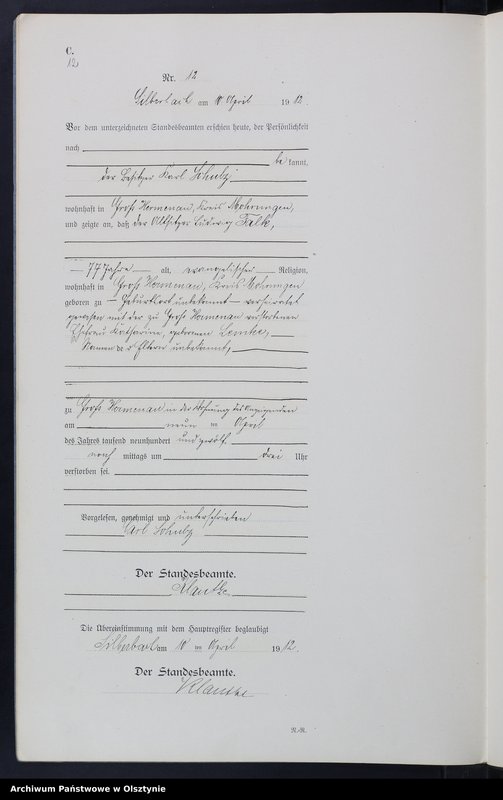 C.
12
Nr. 12
Silberbach am 10 April 1912
Vor dem unterzeichneten Standesbeamten erschien heute, der Persönlichkeit
nach
be kannt,
der Besitzer Karl Schulz
wohnhaft in Groß Hermenau, Kreis Mohrungen,
und zeigte an, daß der Altsitzer Ludwig Falk,
77 Jahre alt, evangelischer Religion,
wohnhaft in Groß Hermenau, Kreis Mohrungen
geboren zu Geburtsort unbekannt verheiratet
gewesen mit der zu Groß Hermenau verstorbenen
Ehefrau Katharine, geborenen Lemke,
Namen der Eltern unbekannt,
zu Groß Hermenau in der Wohnung des Anzeigenden
am neun ten April
des Jahres tausend neunhundert und zwölf
nach mittags um drei Uhr
verstorben sei.
Vorgelesen, genehmigt und unterschrieben
Karl Schulz
Der Standesbeamte.
Die Übereinstimmung mit dem Hauptregister beglaubigt
Silberbach am 10 ten April 1912.
Der Standesbeamte.
R.-R.
Archiwum Państwowe w Olsztynie